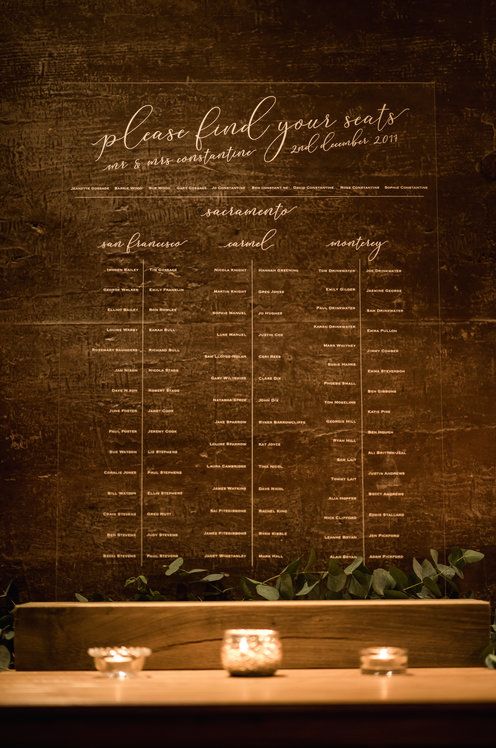 please find your seats
mr & mrs constantine 2nd december 2017
Jeanette Gossage Barrie Wood Sue Wood Gary Gossage Jo Constantine Ben Constantine David Constantine Rose Constantine Sophie Constantine
sacramento
san francisco carmel monterey
Imogen Bailey Tig Gossage Nicola Knight Hannah Greening Tom Drinkwater Joe Drinkwater
George Walker Emily Franklin Martin Knight Greg Jones Emily Gilder Jasmine George
Elliot Bailey Ben Rowles Sophie Manuel Jo Hughes Paul Drinkwater Sam Drinkwater
Louise Warry Sarah Bull Luke Manuel Justin Cox Karen Drinkwater Emma Pullon
Rosemary Saunders Richard Bull Sam Lloyd-Nolan Ceri Rees Mark Whitney Jimmy Comber
Jan Nixon Nicola Stags Gary Wiltshire Clare Dix Susie Harris Emma Steverson
Dave Nixon Robert Stags Natasha Spice John Dix Phoebe Small Ben Gibbons
June Foster Janet Cook Jane Sparrow River Barrowcliffe Tom Moseling Katie Pike
Paul Foster Jeremy Cook Louise Sparrow Kat Joyce Georgie Hill Ben Hough
Sue Watson Liz Stephens Laura Cambridge Tina Nigel Ryan Hill Ali Britton-Jeal
Coralie Jones Paul Stephens James Watkins Dave Nigel Sam Lait Justin Andrews
Bill Watson Ellie Stephens Sai Fitzgibbons Rachel King Tommy Lait Becky Andrews
Craig Stevens Greg Nutt James Fitzgibbons Rikki Bentley Alia Hopper Eddie Stallard
Ben Stevens Judy Stephens Janet Whistanley Mark Hall Nick Clifford Jen Pickford
Becki Stevens Paul Stephens Leanne Bryan Adam Pickford
Alan Bryan